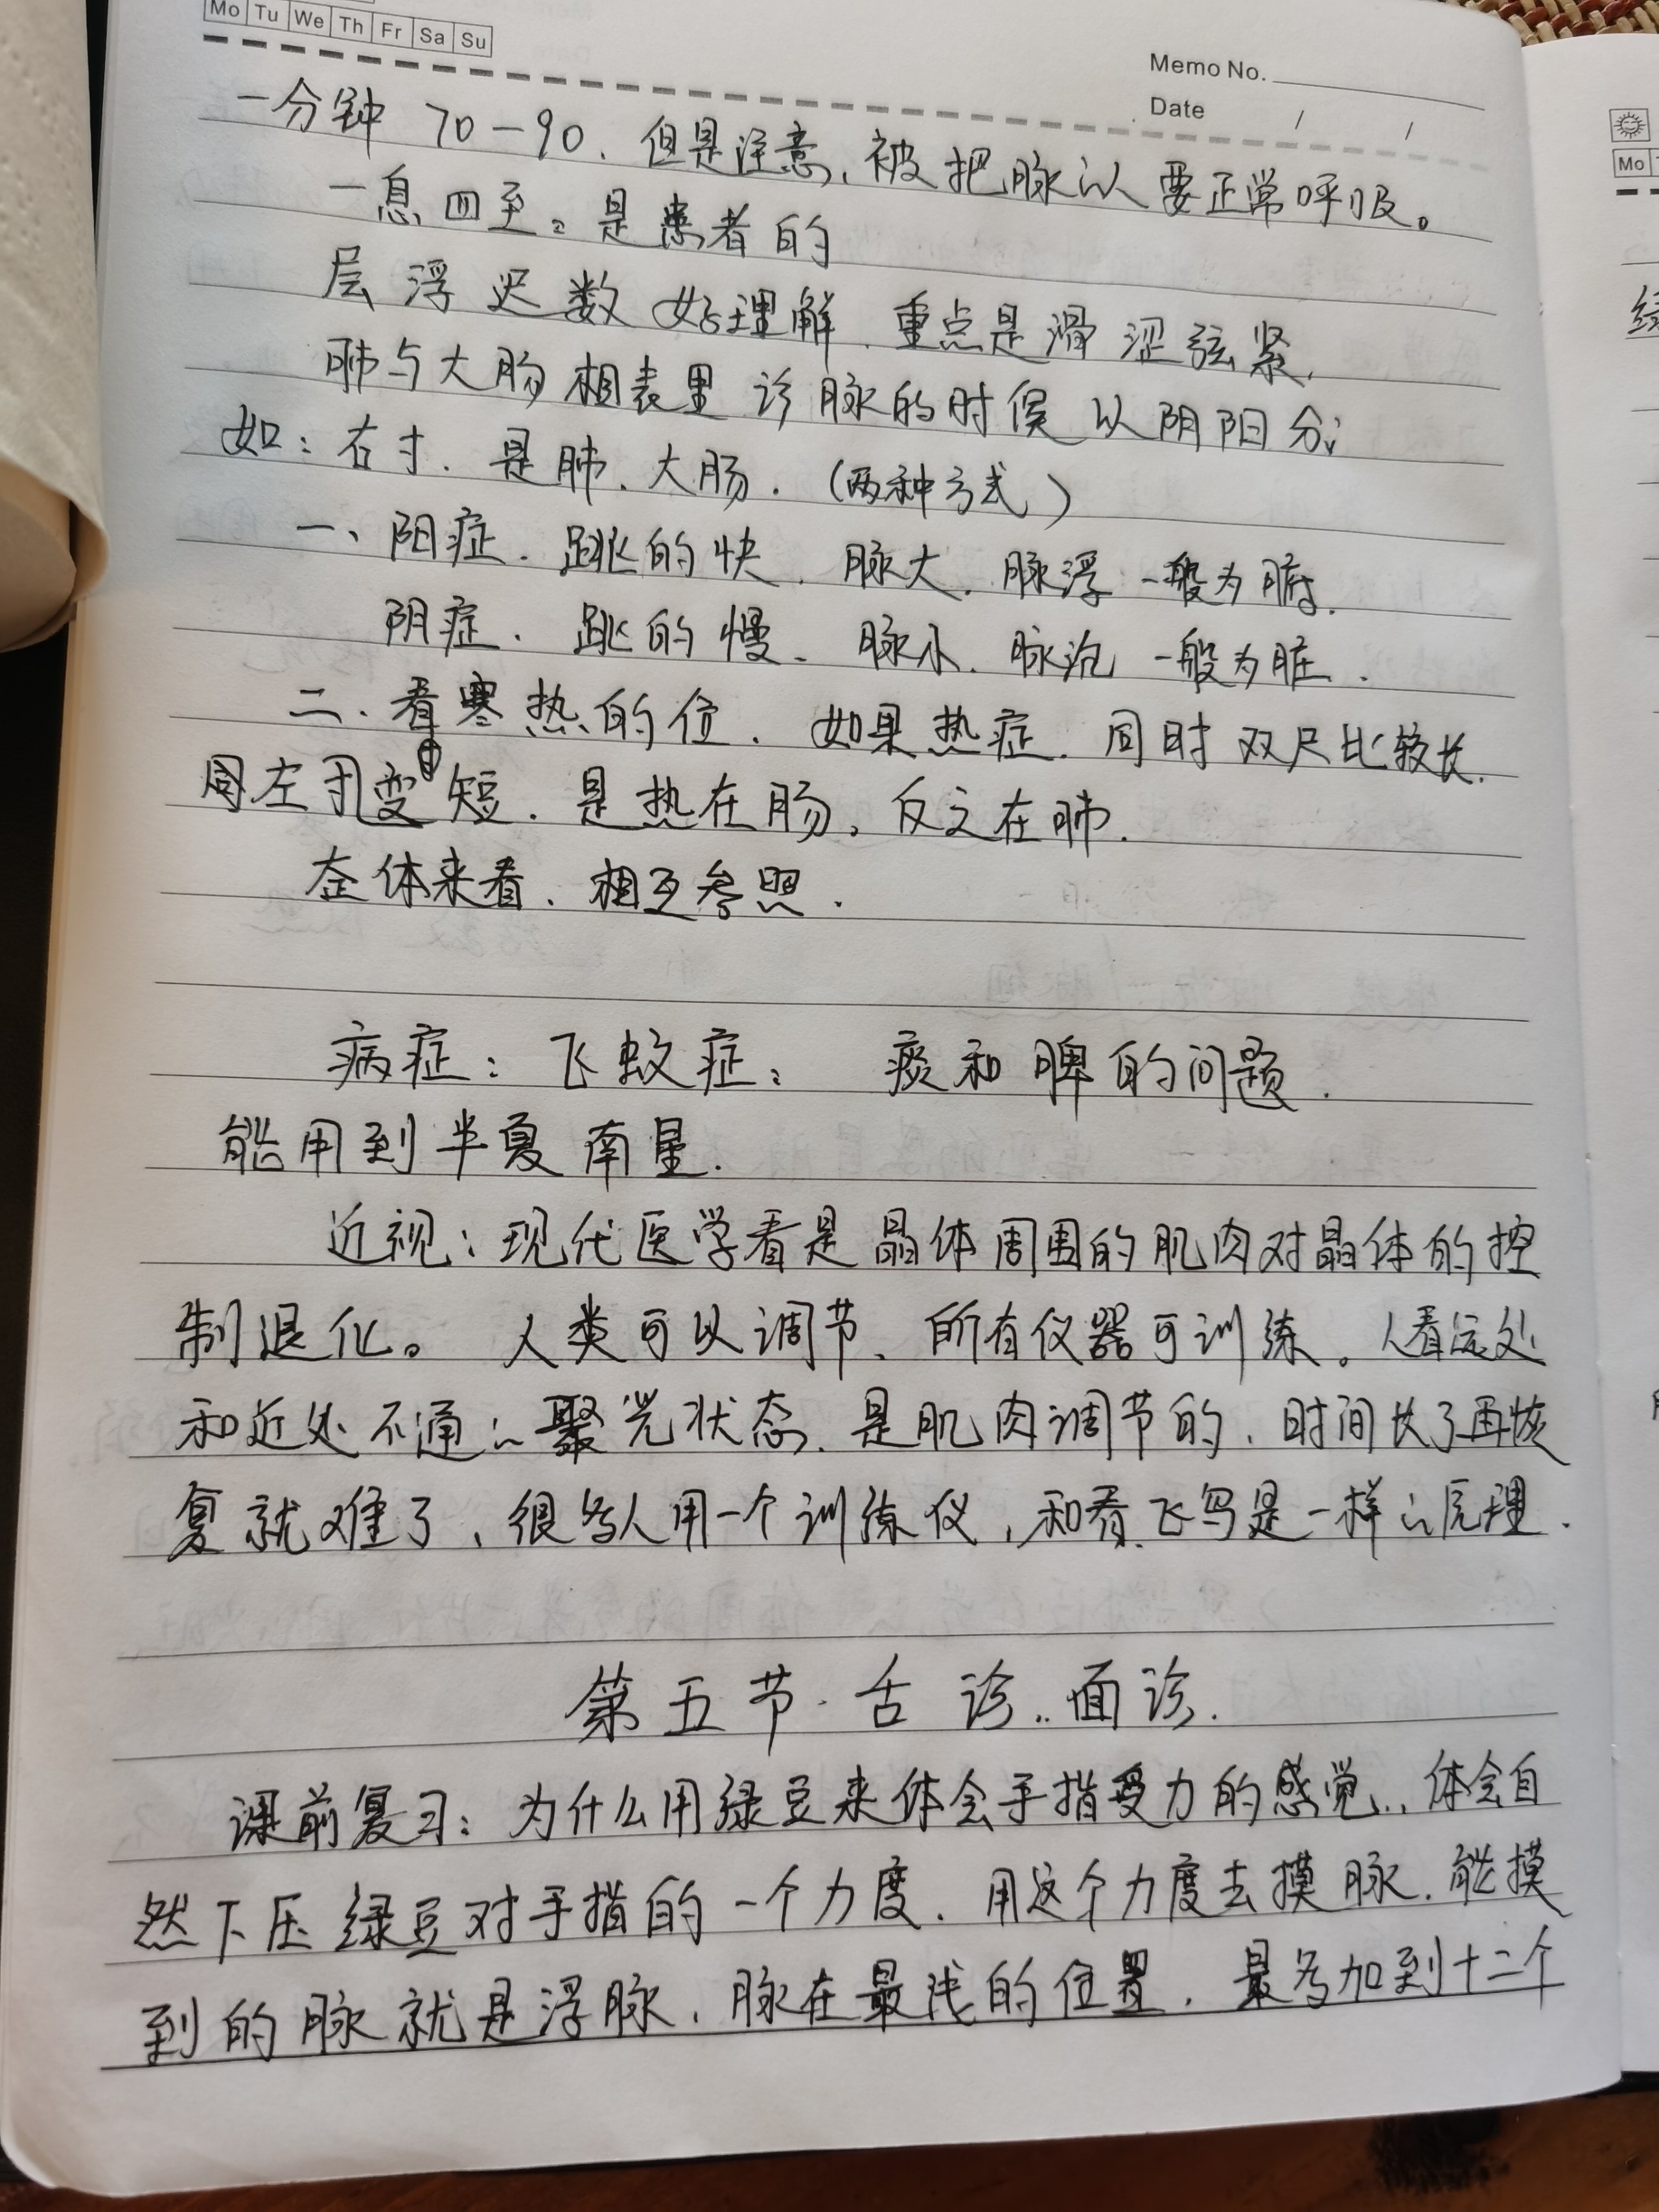 Mo Tu We Th Fr Sa Su
Memo No.
Date / /
一分钟 70-90、但是注意、被把脉以要正常呼吸。
一息四至。是患者的
层 浮 迟 数 好理解、重点是滑 涩弦紧、
肺与大肠相表里 诊脉的时候 以阴阳分
如：右寸、是肺、大肠．（两种方式）
一、阳症．跳的快、脉大、脉浮 一般为腑．
阴症．跳的慢、脉小、脉沉 一般为脏．
二、看寒热的位．如果热症．同时双尺比较长．
左寸变短．是热在肠，反之在肺．
整体来看、相互参照．
病症：飞蚊症： 痰和脾的问题．
能用到半夏 南星．
近视：现代医学看是晶体周围的肌肉对晶体的控
制退化。 人类可以调节、所有仪器可训练。人看远处
和近处不通∴聚光状态、是肌肉调节的、时间长了再恢
复就难了、很多人用一个训练仪，和看飞鸟是一样的原理．
第五节·舌诊..面诊．
课前复习：为什么用绿豆来体会手指受力的感觉..体会自
然下压绿豆对手指的一个力度．用这个力度去摸脉．能摸
到的脉就是浮脉、脉在最浅的位置．最多加到十二个
Mo